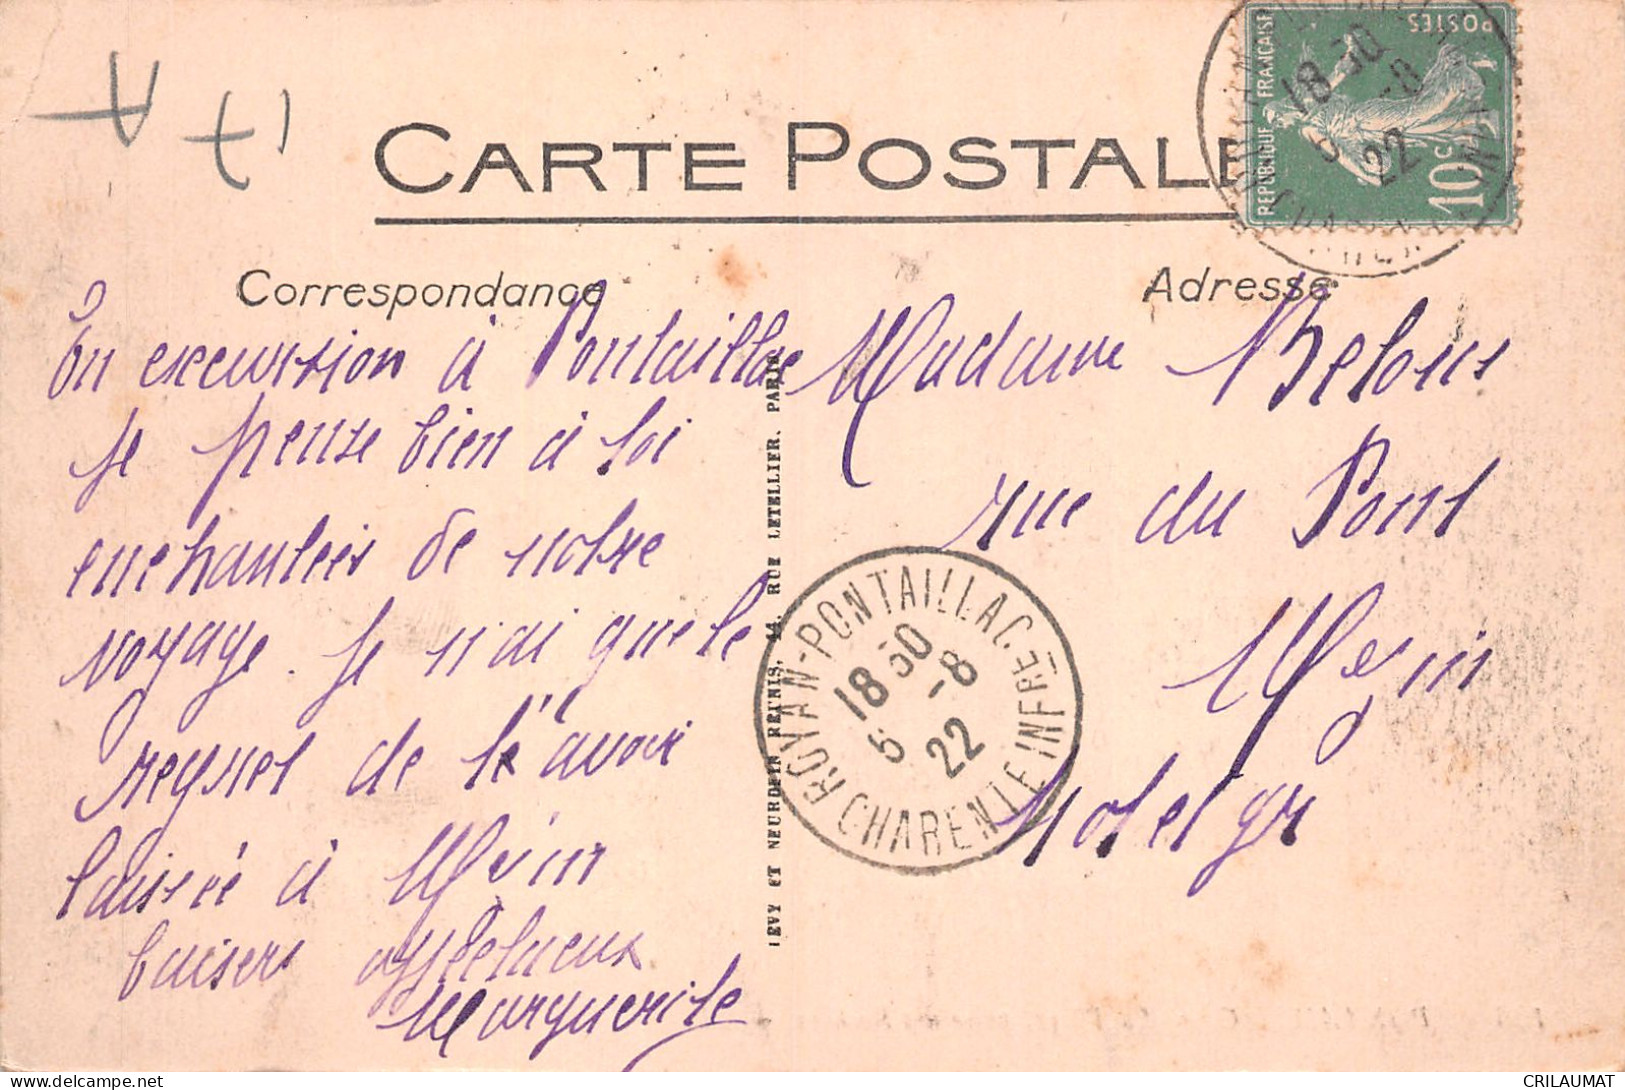 CARTE POSTALE
Correspondance
Adresse
En excursion à Pontaillac
je pense bien à toi
enchantées de notre
voyage. je n'ai que le
regret de t'avoir
laissée à Mézin
baisers affectueux
Marguerite
LEVY ET NEURDEIN REUNIS, 44, RUE LETELLIER, PARIS
Madame
rue du Pont
Mézin
Lot et gne
REPUBLIQUE FRANCAISE
POSTES
10c
18 30
5 -8
22
ROYAN-PONTAILLAC
CHARENTE INFRE
18 30
5 -8
22
delcampe.net
CRILAUMAT